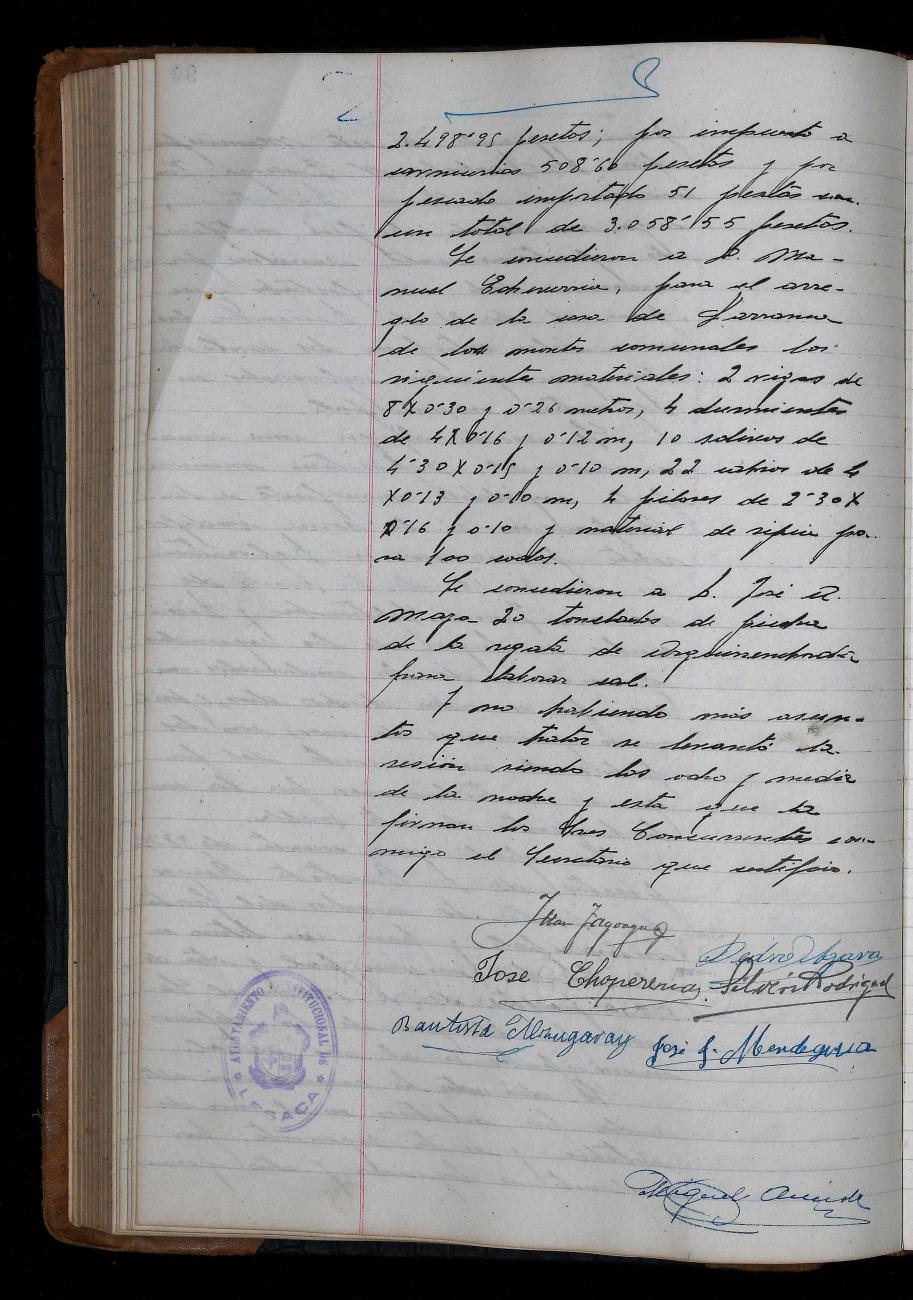 2.498'95 pesetas; por impuesto a
carnicerias 508'60 pesetas y por
pescado importado 51 pesetas con
un total de 3.058'55 pesetas.
Se concedieron a D. Ma-
nuel Echeverria, para el arre-
glo de la casa de Larranea
de los montes comunales los
siguientes materiales: 2 vigas de
8 X 0'30 y 0'26 metros, 4 durmientes
de 4 X 0'16 y 0'12 m, 10 solivos de
4'30 X 0'15 y 0'10 m, 22 cabrios de 4
X 0'13 y 0'10 m, 4 pilares de 2'30 X
0'16 y 0'10 y material de ripia pa-
ra 100 codos.
Se concedieron a D. José A.
Maya 20 toneladas de piedra
de la regata de
para elaborar cal.
Y no habiendo más asun-
tos que tratar se levantó la
sesión siendo las ocho y media
de la noche y esta que la
firman los Sres Concurrentes con-
migo el Secretario que certifico.
Juan
Pedro Abzara
Jose Choperena. Silverio Rodriguez
Bautista José L. Mendeguia
AYUNTAMIENTO CONSTITUCIONAL DE
LESACA
Miguel